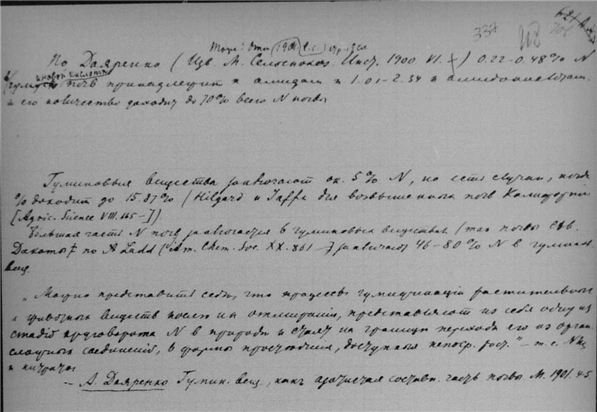 334 118
По Дояренко (Изв. М. Сельскохоз. Инст. 1900 VI. ) 0.22-0.48% N
почв принадлежит к амидам и 1.01-2.34
и его количество доходит до 70% всего N почвы
Гуминовые вещества заключают ок. 5% N, но есть случаи, когда
% доходит до 15.87% (Hilgard и Jaffa для возвышенных почв Калифорнии
[Agric. Science VIII. 165-]).
Большая часть N почв заключается в гуминовых веществах (так почвы Сѣв.
Дакоты по A Ladd (Am. Chem. Soc. XX. 861 ) заключают 46-80% N в гумин.
вещ.
„Можно представить себе, что процессы гумификации растительных
и животных веществ после их отмирания, представляют из себя одну из
стадий круговорота N в природе и стоят на границе перехода его из орган.
сложных соединений, в формы простейшие, доступные непоср. раст." - т.е. NH3
и нитраты
- А. Дояренко Гумин. вещ., как азотистая составн. часть почвы. М. 1901. 4-5.